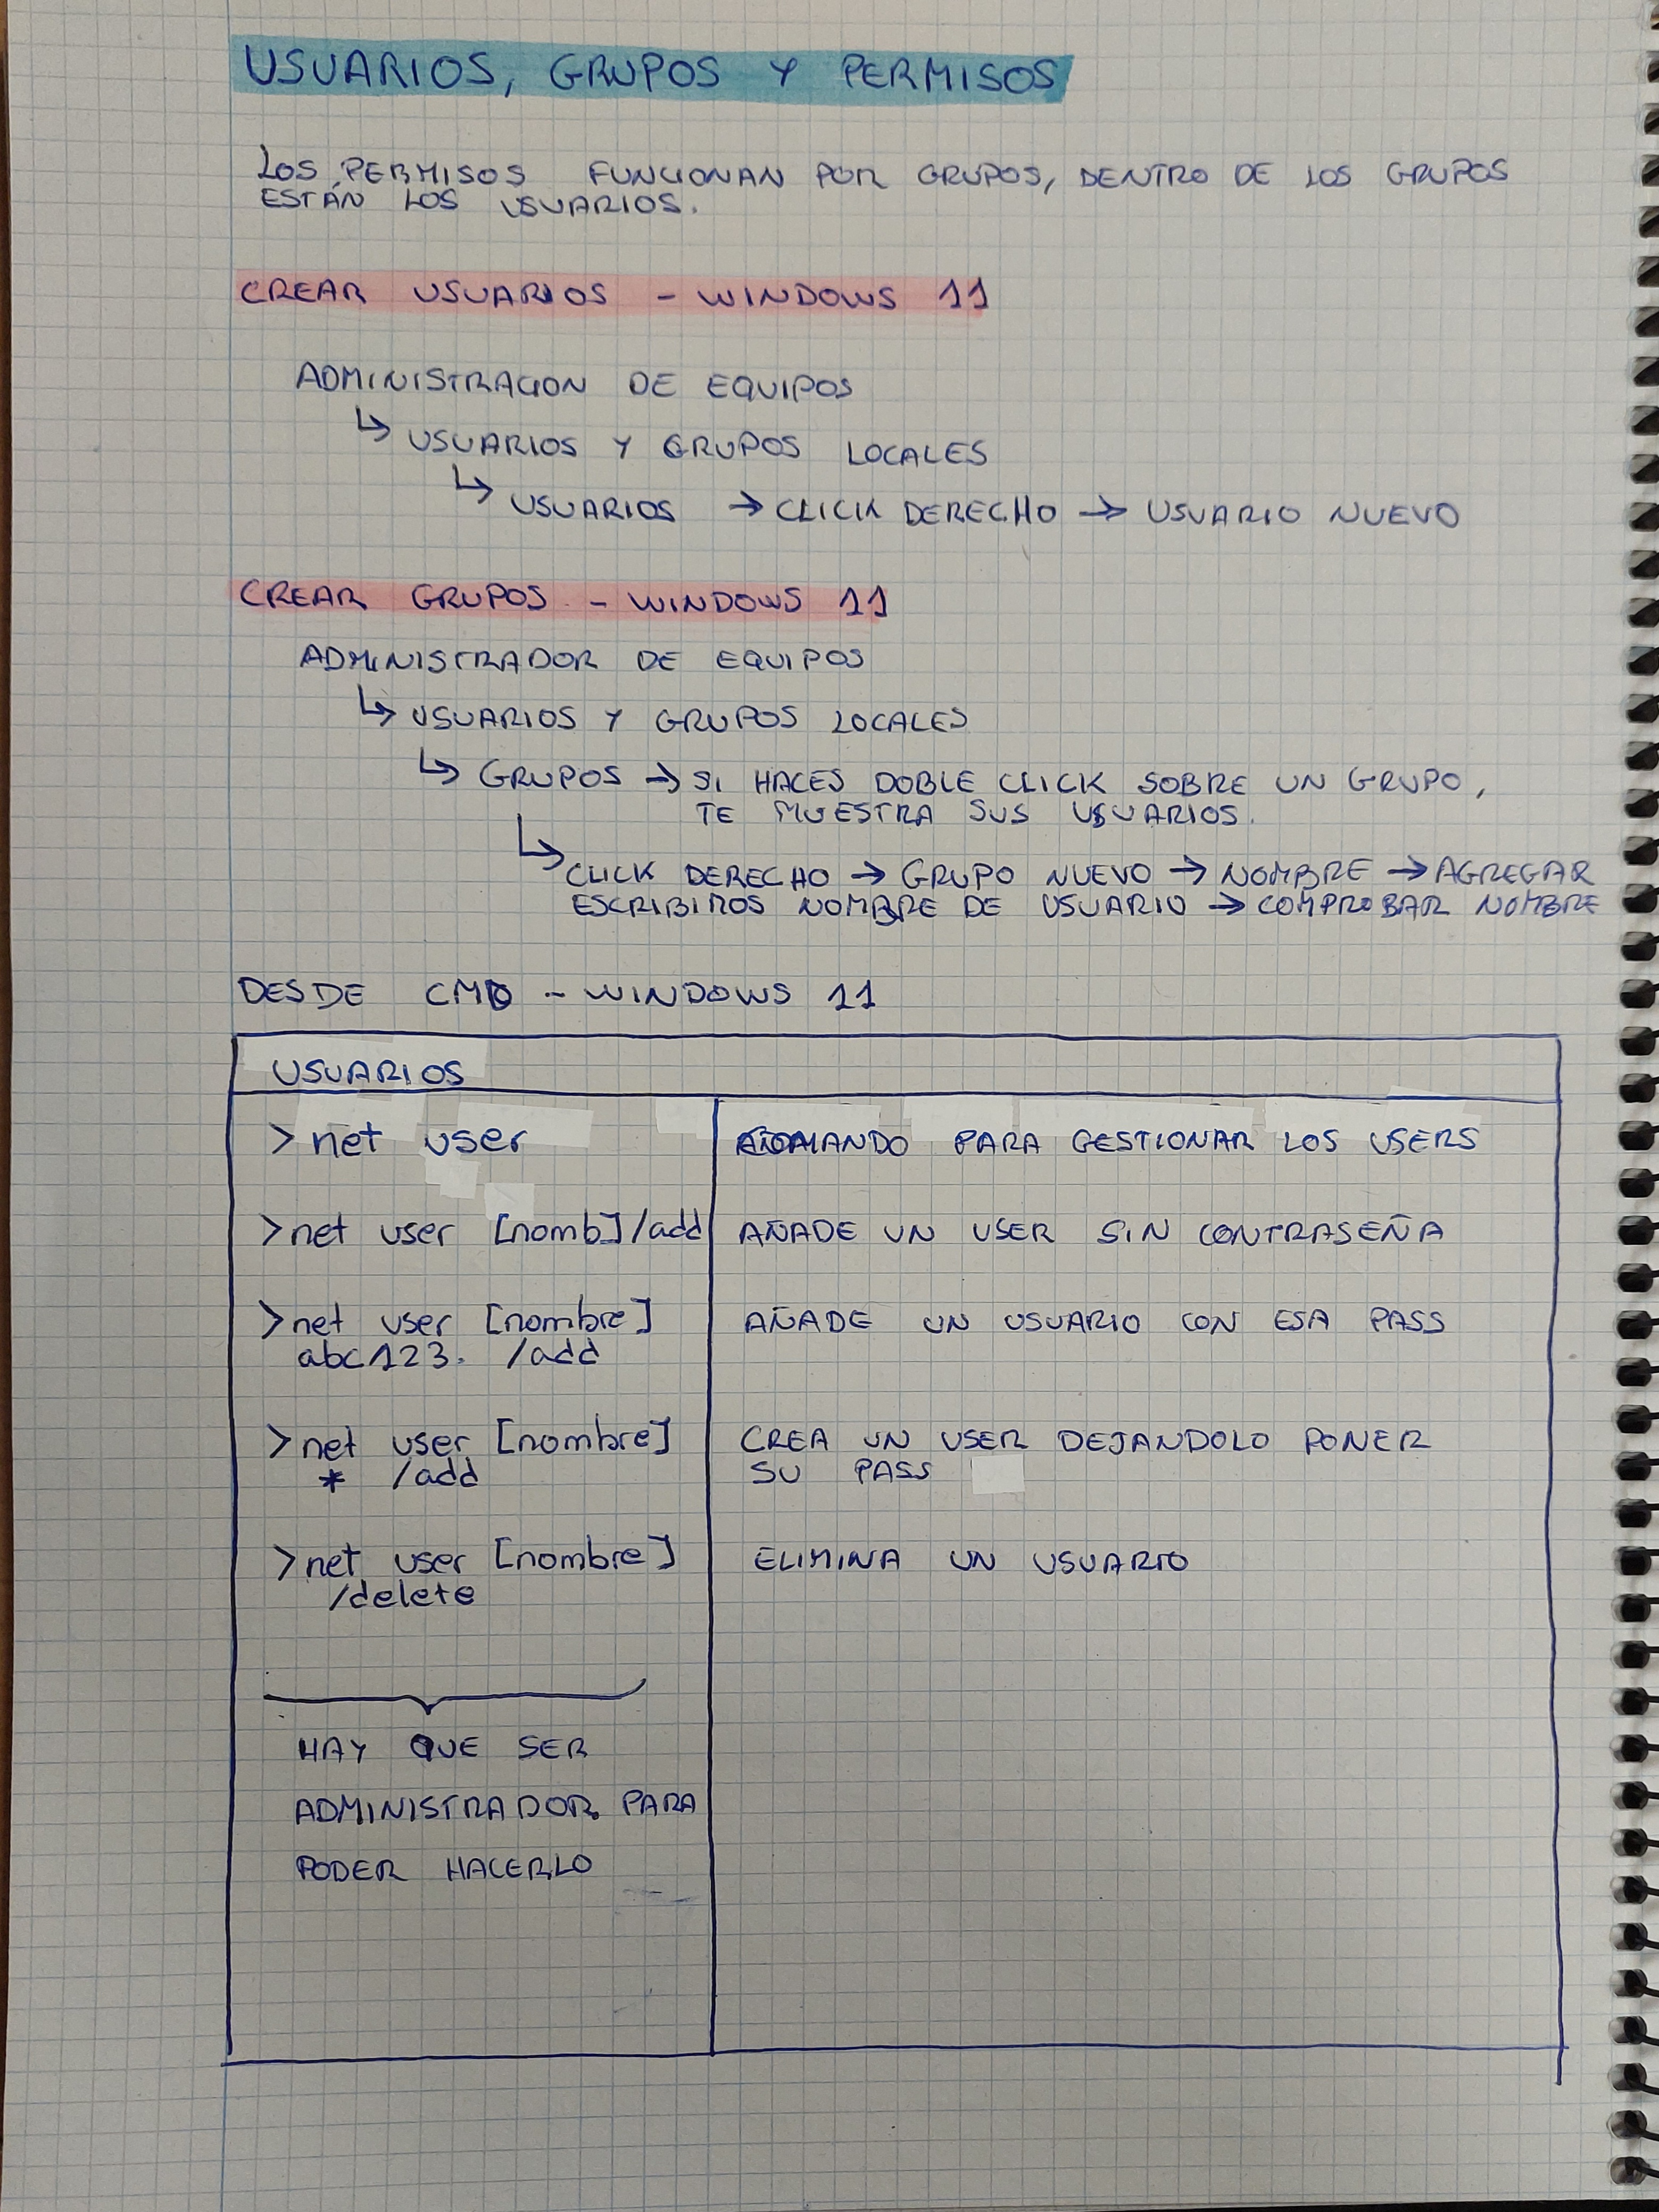 USUARIOS, GRUPOS Y PERMISOS
LOS PERMISOS FUNCIONAN POR GRUPOS, DENTRO DE LOS GRUPOS
ESTÁN LOS USUARIOS.
CREAR USUARIOS - WINDOWS 11
ADMINISTRACION DE EQUIPOS
↳ USUARIOS Y GRUPOS LOCALES
↳ USUARIOS → CLICK DERECHO → USUARIO NUEVO
CREAR GRUPOS - WINDOWS 11
ADMINISTRADOR DE EQUIPOS
↳ USUARIOS Y GRUPOS LOCALES
↳ GRUPOS → SI HACES DOBLE CLICK SOBRE UN GRUPO,
TE MUESTRA SUS USUARIOS.
↳ CLICK DERECHO → GRUPO NUEVO → NOMBRE → AGREGAR
ESCRIBIMOS NOMBRE DE USUARIO → COMPROBAR NOMBRE
DESDE CMD - WINDOWS 11
USUARIOS
> net user COMANDO PARA GESTIONAR LOS USERS
> net user [nomb] /add AÑADE UN USER SIN CONTRASEÑA
> net user [nombre] AÑADE UN USUARIO CON ESA PASS
abc123. /add
> net user [nombre] CREA UN USER DEJANDOLO PONER
* /add SU PASS
> net user [nombre] ELIMINA UN USUARIO
/delete
HAY QUE SER
ADMINISTRADOR PARA
PODER HACERLO